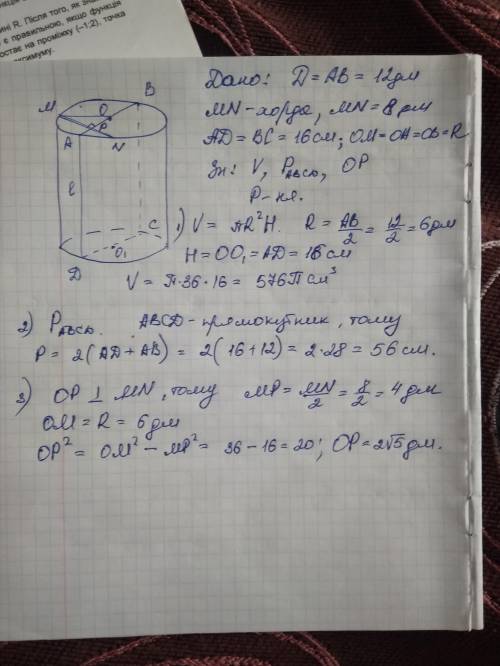 ині R. Після того, як зна
є правильною, якщо функція
остає на проміжку (–1;2), точка
ксимуму.
Дано: D = AB = 12дм
MN - хорда, MN = 8 дм
AD = BC = 16 см; OM = OH = OB = R
Зн: V, P ABCD, OP
P - ?
M
O
B
P
A
N
ℓ
C
D
O₁
1) V = πR²H. R = AB/2 = 12/2 = 6дм
H = OO₁ = AD = 16 см
V = π·36·16 = 576π см³
2) P ABCD. ABCD - прямокутник, тому
P = 2(AD + AB) = 2(16 + 12) = 2·28 = 56 см.
3) OP ⊥ MN, тому MP = MN/2 = 8/2 = 4 дм
OM = R = 6 дм
OP² = OM² – MP² = 36 – 16 = 20; OP = 2√5 дм.